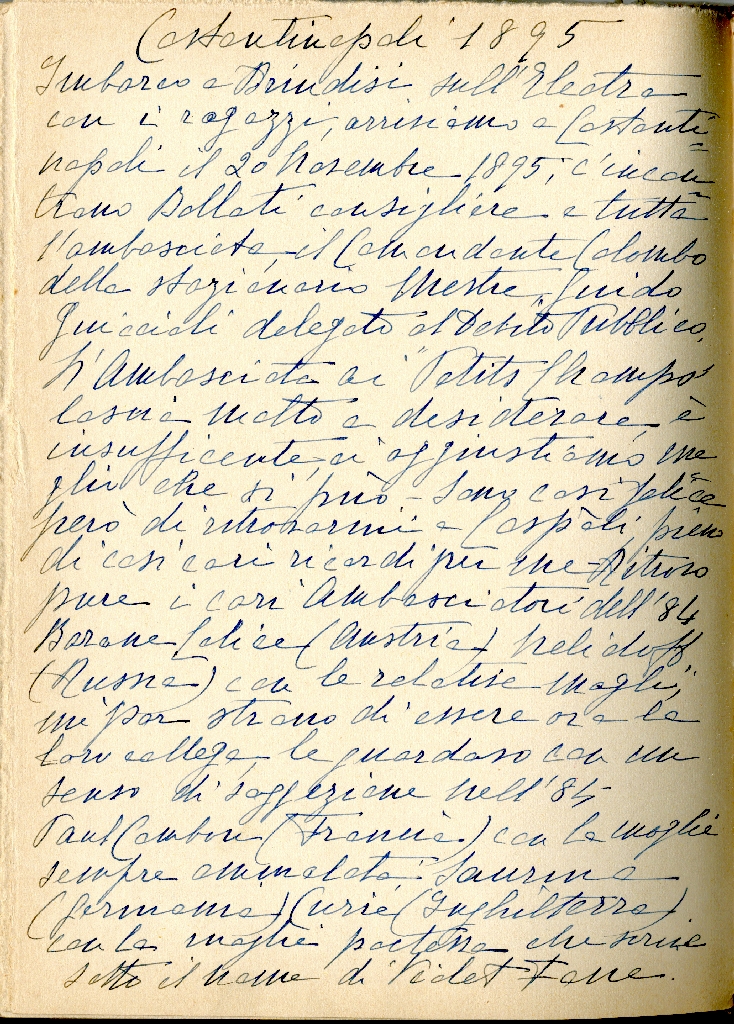 Costantinopoli 1895
Imbarco a Brindisi sull'Electra
con i ragazzi, arriviamo a Costanti=
nopoli il 20 Novembre 1895, c'incon=
trano Bollati consigliere e tutta
l'ambasciata, il Comandante Colombo
dello stazionario Mestre, Guido
Guiccioli delegato al Debito Pubblico.
L'Ambasciata ai "Petits Champs"
lascia molto a desiderare, è
insufficente, ci aggiustiamo me=
glio che si può - Sono così felice
però di ritrovarmi a Cospoli, pieno
di così cari ricordi per me - Ritrovo
pure i cari Ambasciatori dell'84
Barone Calice (Austria) Nelidoff
(Russia) con le relative mogli,
mi par strano di essere ora la
loro collega, le guardavo con un
senso di soggezione nell'84
Paul Cambon (Francia) con la moglie
sempre ammalata Saurma
(Germania) Curie (Inghilterra)
con la moglie poetessa che scrive
sotto il nome di Violet Fane.